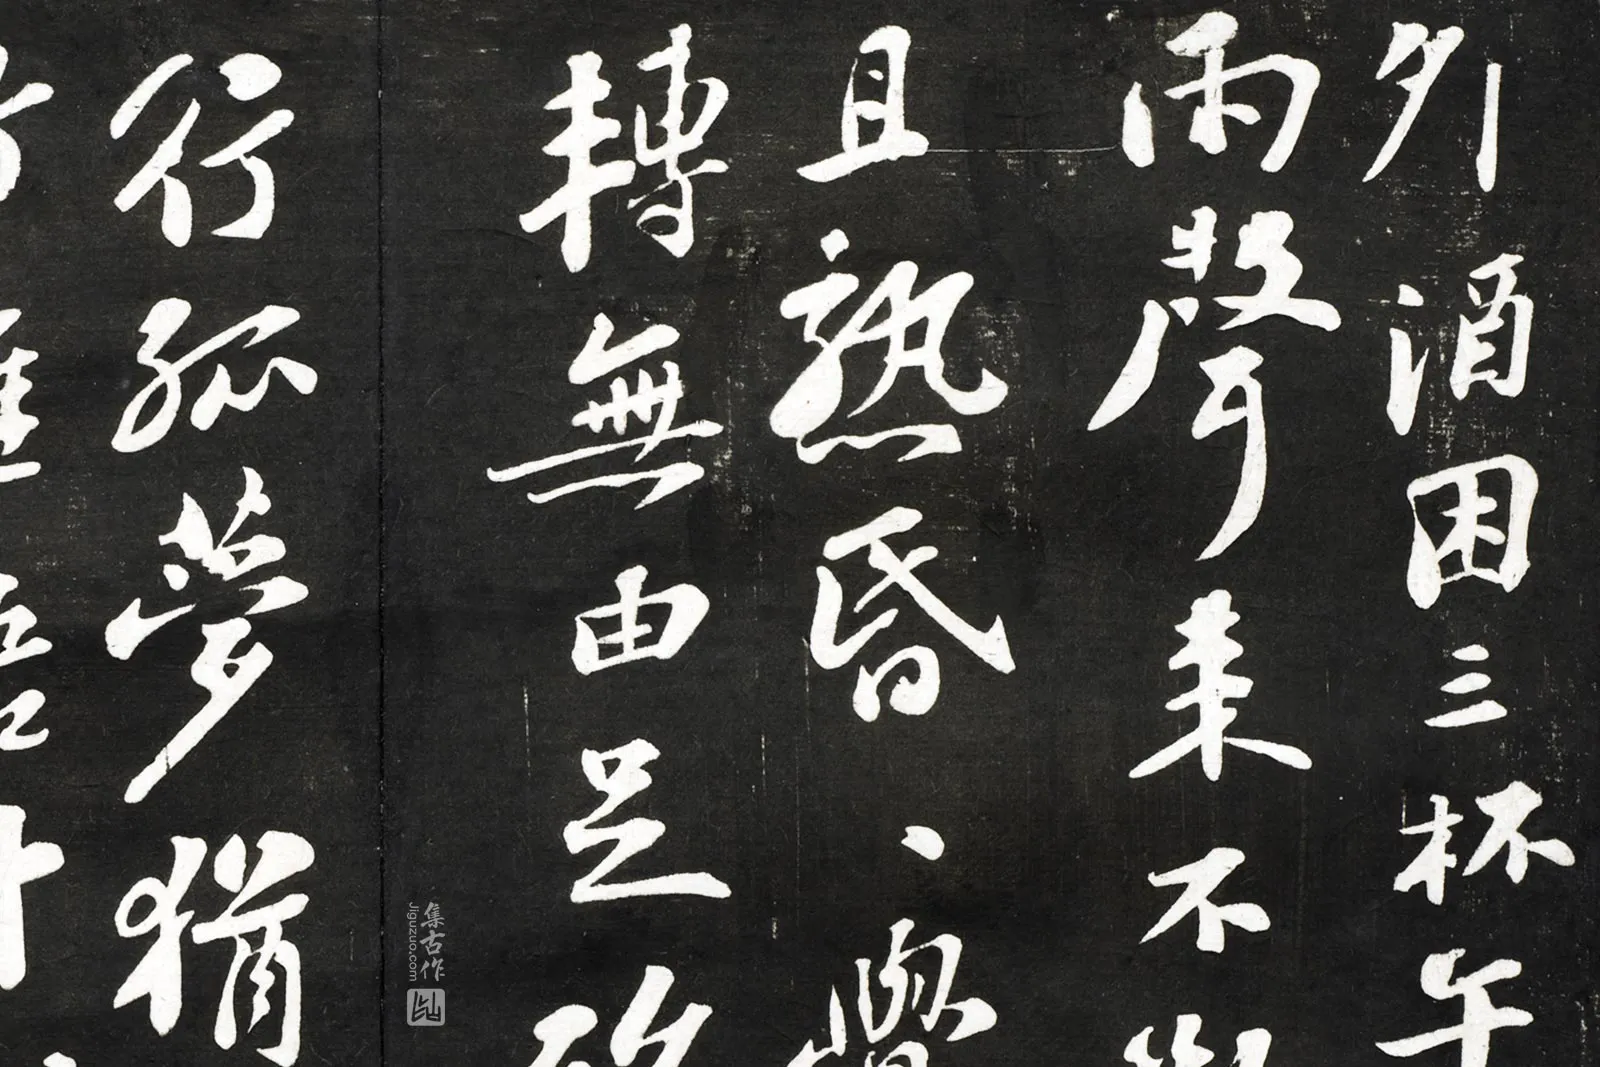 夘酒困三杯午
雨聲来不
且熟昏、覺
轉無由足
行孤夢猶
集古作
jiguzuo.com